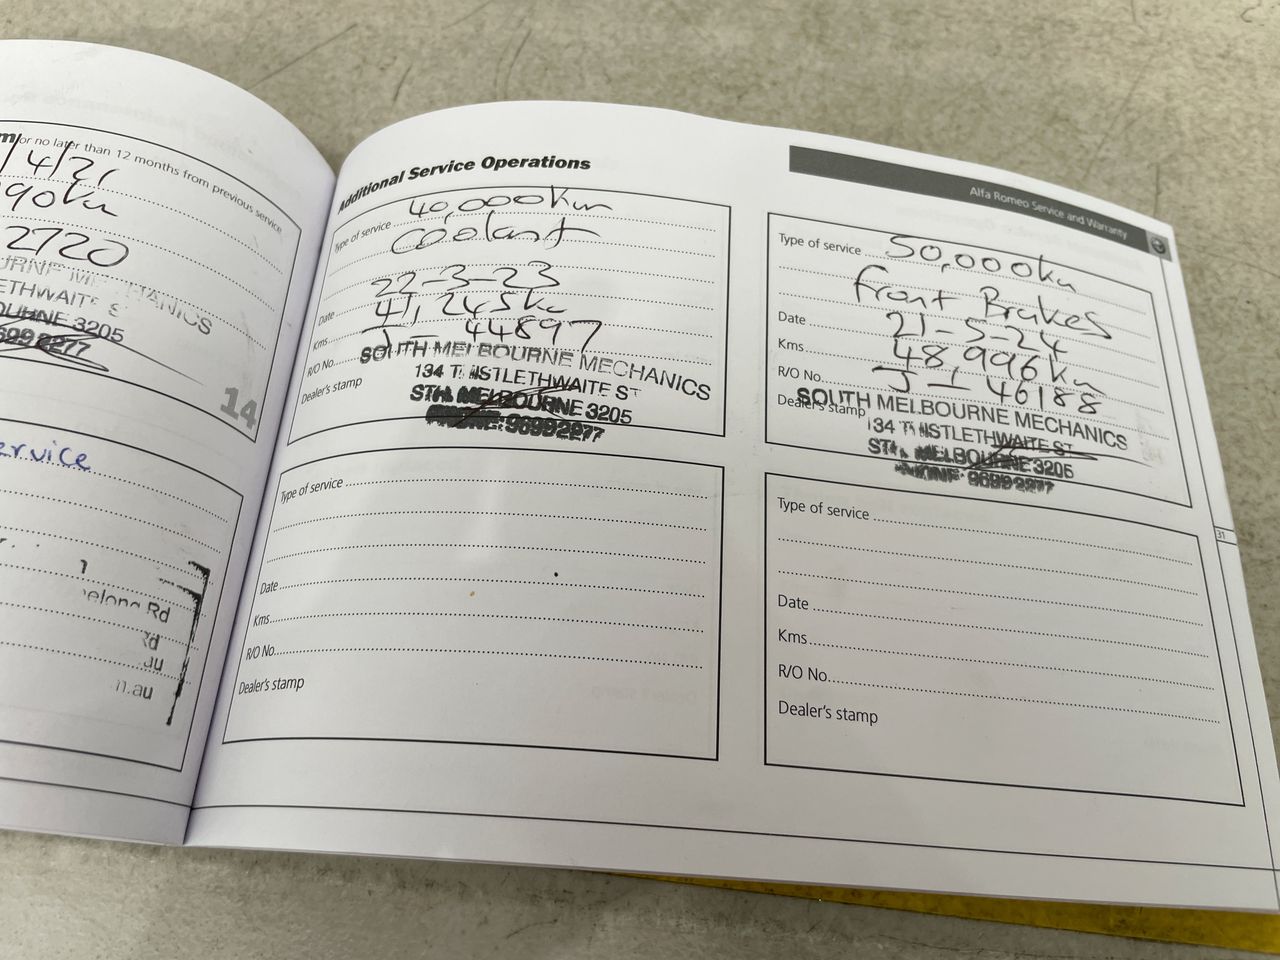 or no later than 12 months from previous service
/4/21
90km
2720
MECHANICS
3205
14
ervice
elong Rd
Rd
au
m.au
Additional Service Operations
Type of service 40,000km
Coolant
Date 22-3-23
Kms 41,245km
R/O No. J-I 44897
Dealer's stamp
SOUTH MELBOURNE MECHANICS
134 THISTLETHWAITE ST
STH MELBOURNE 3205
PHONE: 9699 2277
Type of service
Date
Kms
R/O No.
Dealer's stamp
Alfa Romeo Service and Warranty
Type of service 50,000km
Front Brakes
Date 21-5-24
Kms 48,996km
R/O No. J-I 46188
Dealer's stamp
SOUTH MELBOURNE MECHANICS
134 THISTLETHWAITE ST
STH MELBOURNE 3205
PHONE: 9699 2277
Type of service
Date
Kms
R/O No.
Dealer's stamp
31